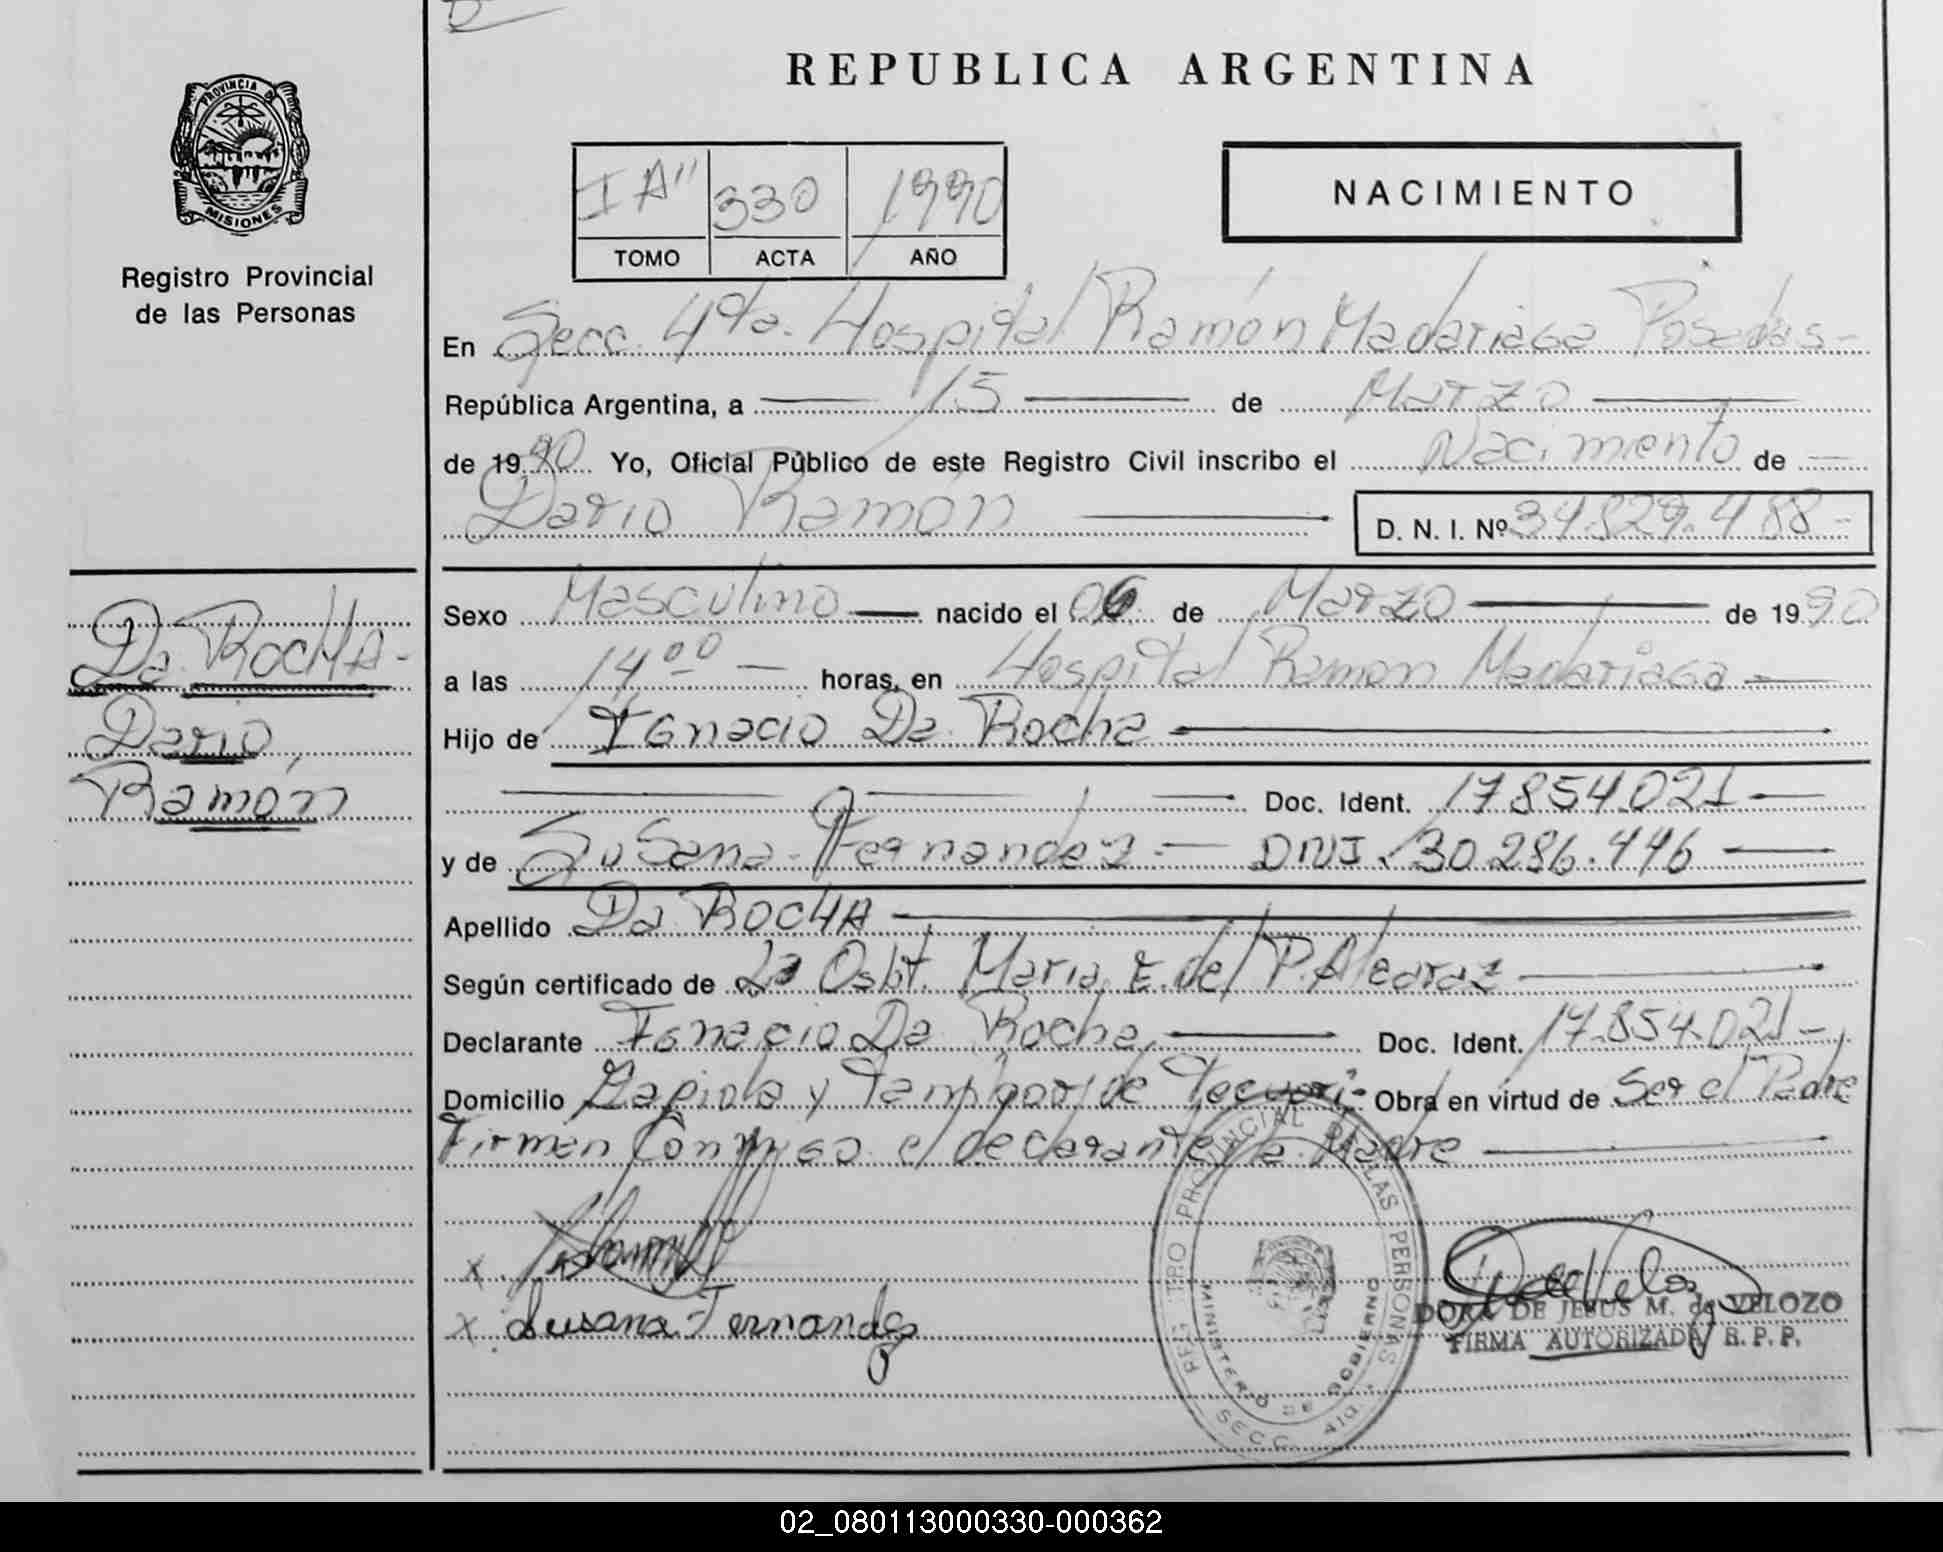 REPUBLICA ARGENTINA
PROVINCIA DE
MISIONES
Registro Provincial
de las Personas
I A" 330 1990
TOMO ACTA AÑO
NACIMIENTO
En Secc. 4ta. Hospital Ramón Madariaga Posadas-
República Argentina, a 15 de Marzo
de 1990 Yo, Oficial Público de este Registro Civil inscribo el Nacimiento de
Dario Ramón D. N. I. Nº 34.829.488-
Sexo Masculino nacido el 06 de Marzo de 1990
a las 14 00 horas, en Hospital Ramon Madariaga
Hijo de Ignacio Da Rocha
Doc. Ident. 17854.021
y de Susana Fernandez - DNI. 30.286.446
Apellido Da ROCHA
Según certificado de La Osbt. Maria E. del P. Alcaraz
Declarante Ignacio Da Rocha Doc. Ident. 17.854.021-
Domicilio y de Obra en virtud de Ser el Padre
Firman Conmigo el declarante y la Madre
Da ROCHA-
Dario
Ramón
x
x Susana Fernandez
REGISTRO PROVINCIAL DE LAS PERSONAS
MINISTERIO DE GOBIERNO
SECC. 4ta.
DORA DE JESUS M. de VELOZO
FIRMA AUTORIZADA R. P. P.
02_080113000330-000362